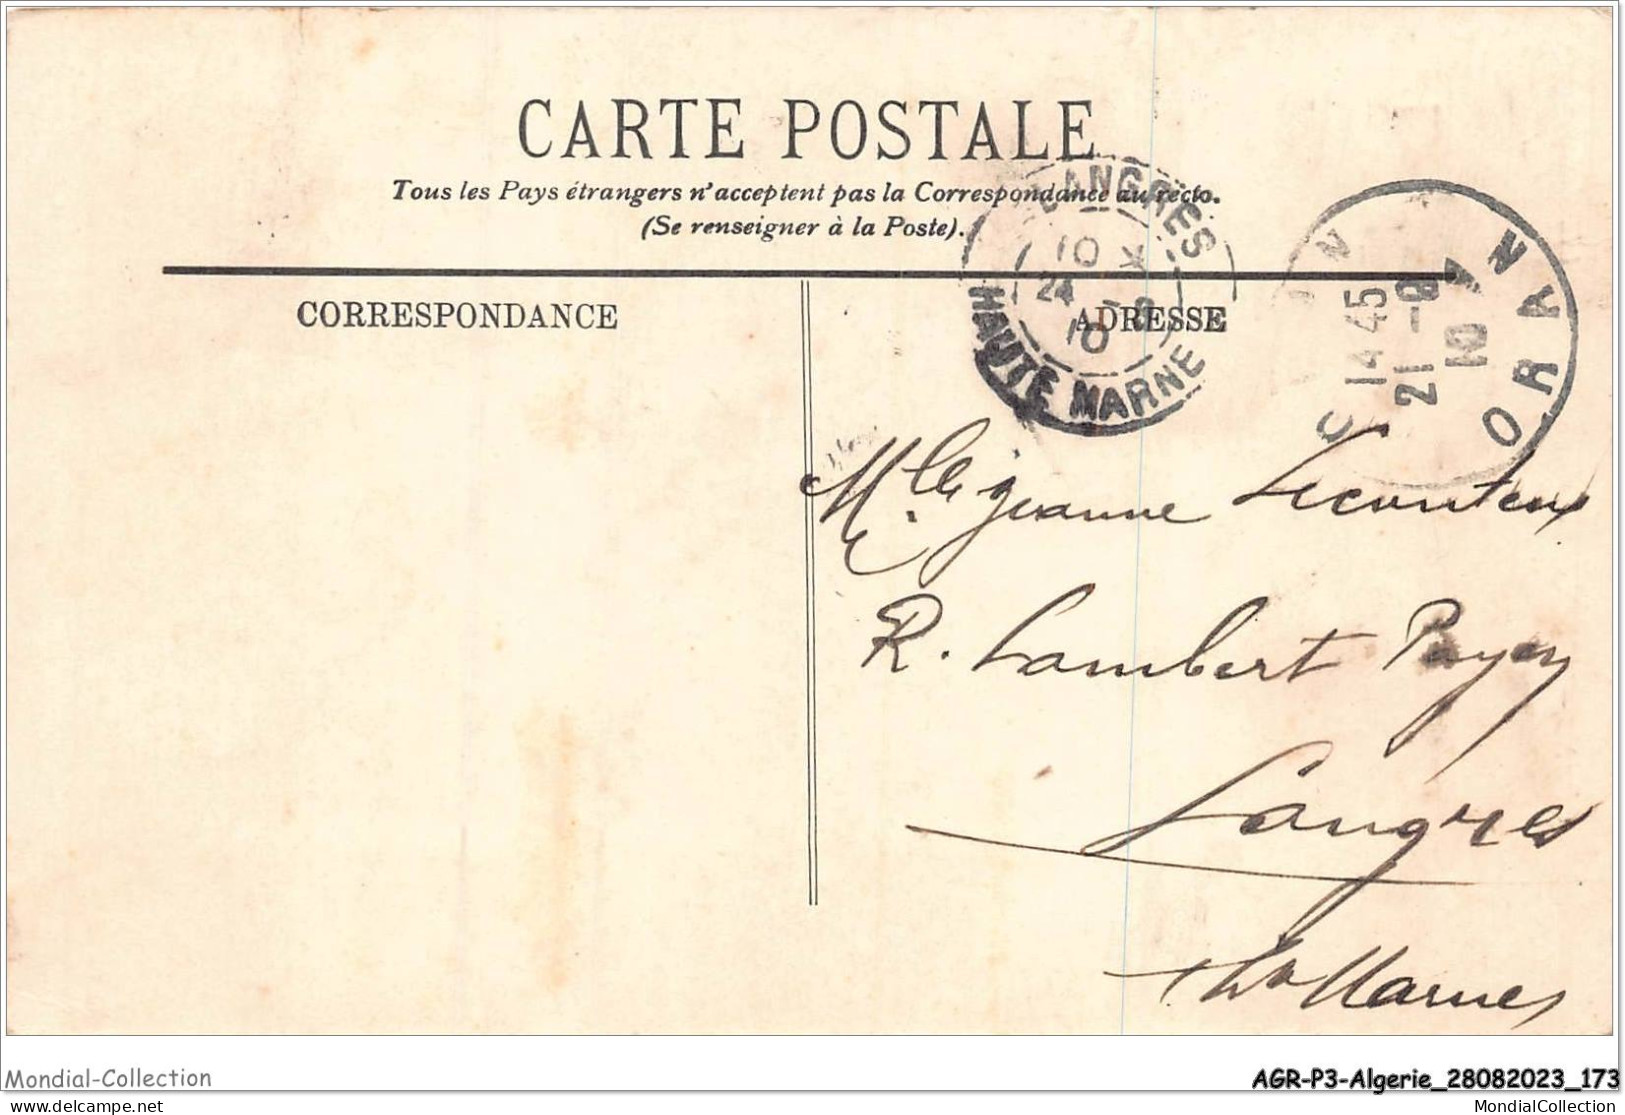 CARTE POSTALE
Tous les Pays étrangers n'acceptent pas la Correspondance au recto.
(Se renseigner à la Poste).
CORRESPONDANCE
ADRESSE
LANGRES
10 *
24 -8
10
HAUTE MARNE
ORAN
14 45
21 -8
10
Mlle Jeanne Lecouteux
R. Lambert Payen
Langres
Hte Marne
Mondial-Collection
AGR-P3-Algerie_28082023_173
delcampe.net
MondialCollection